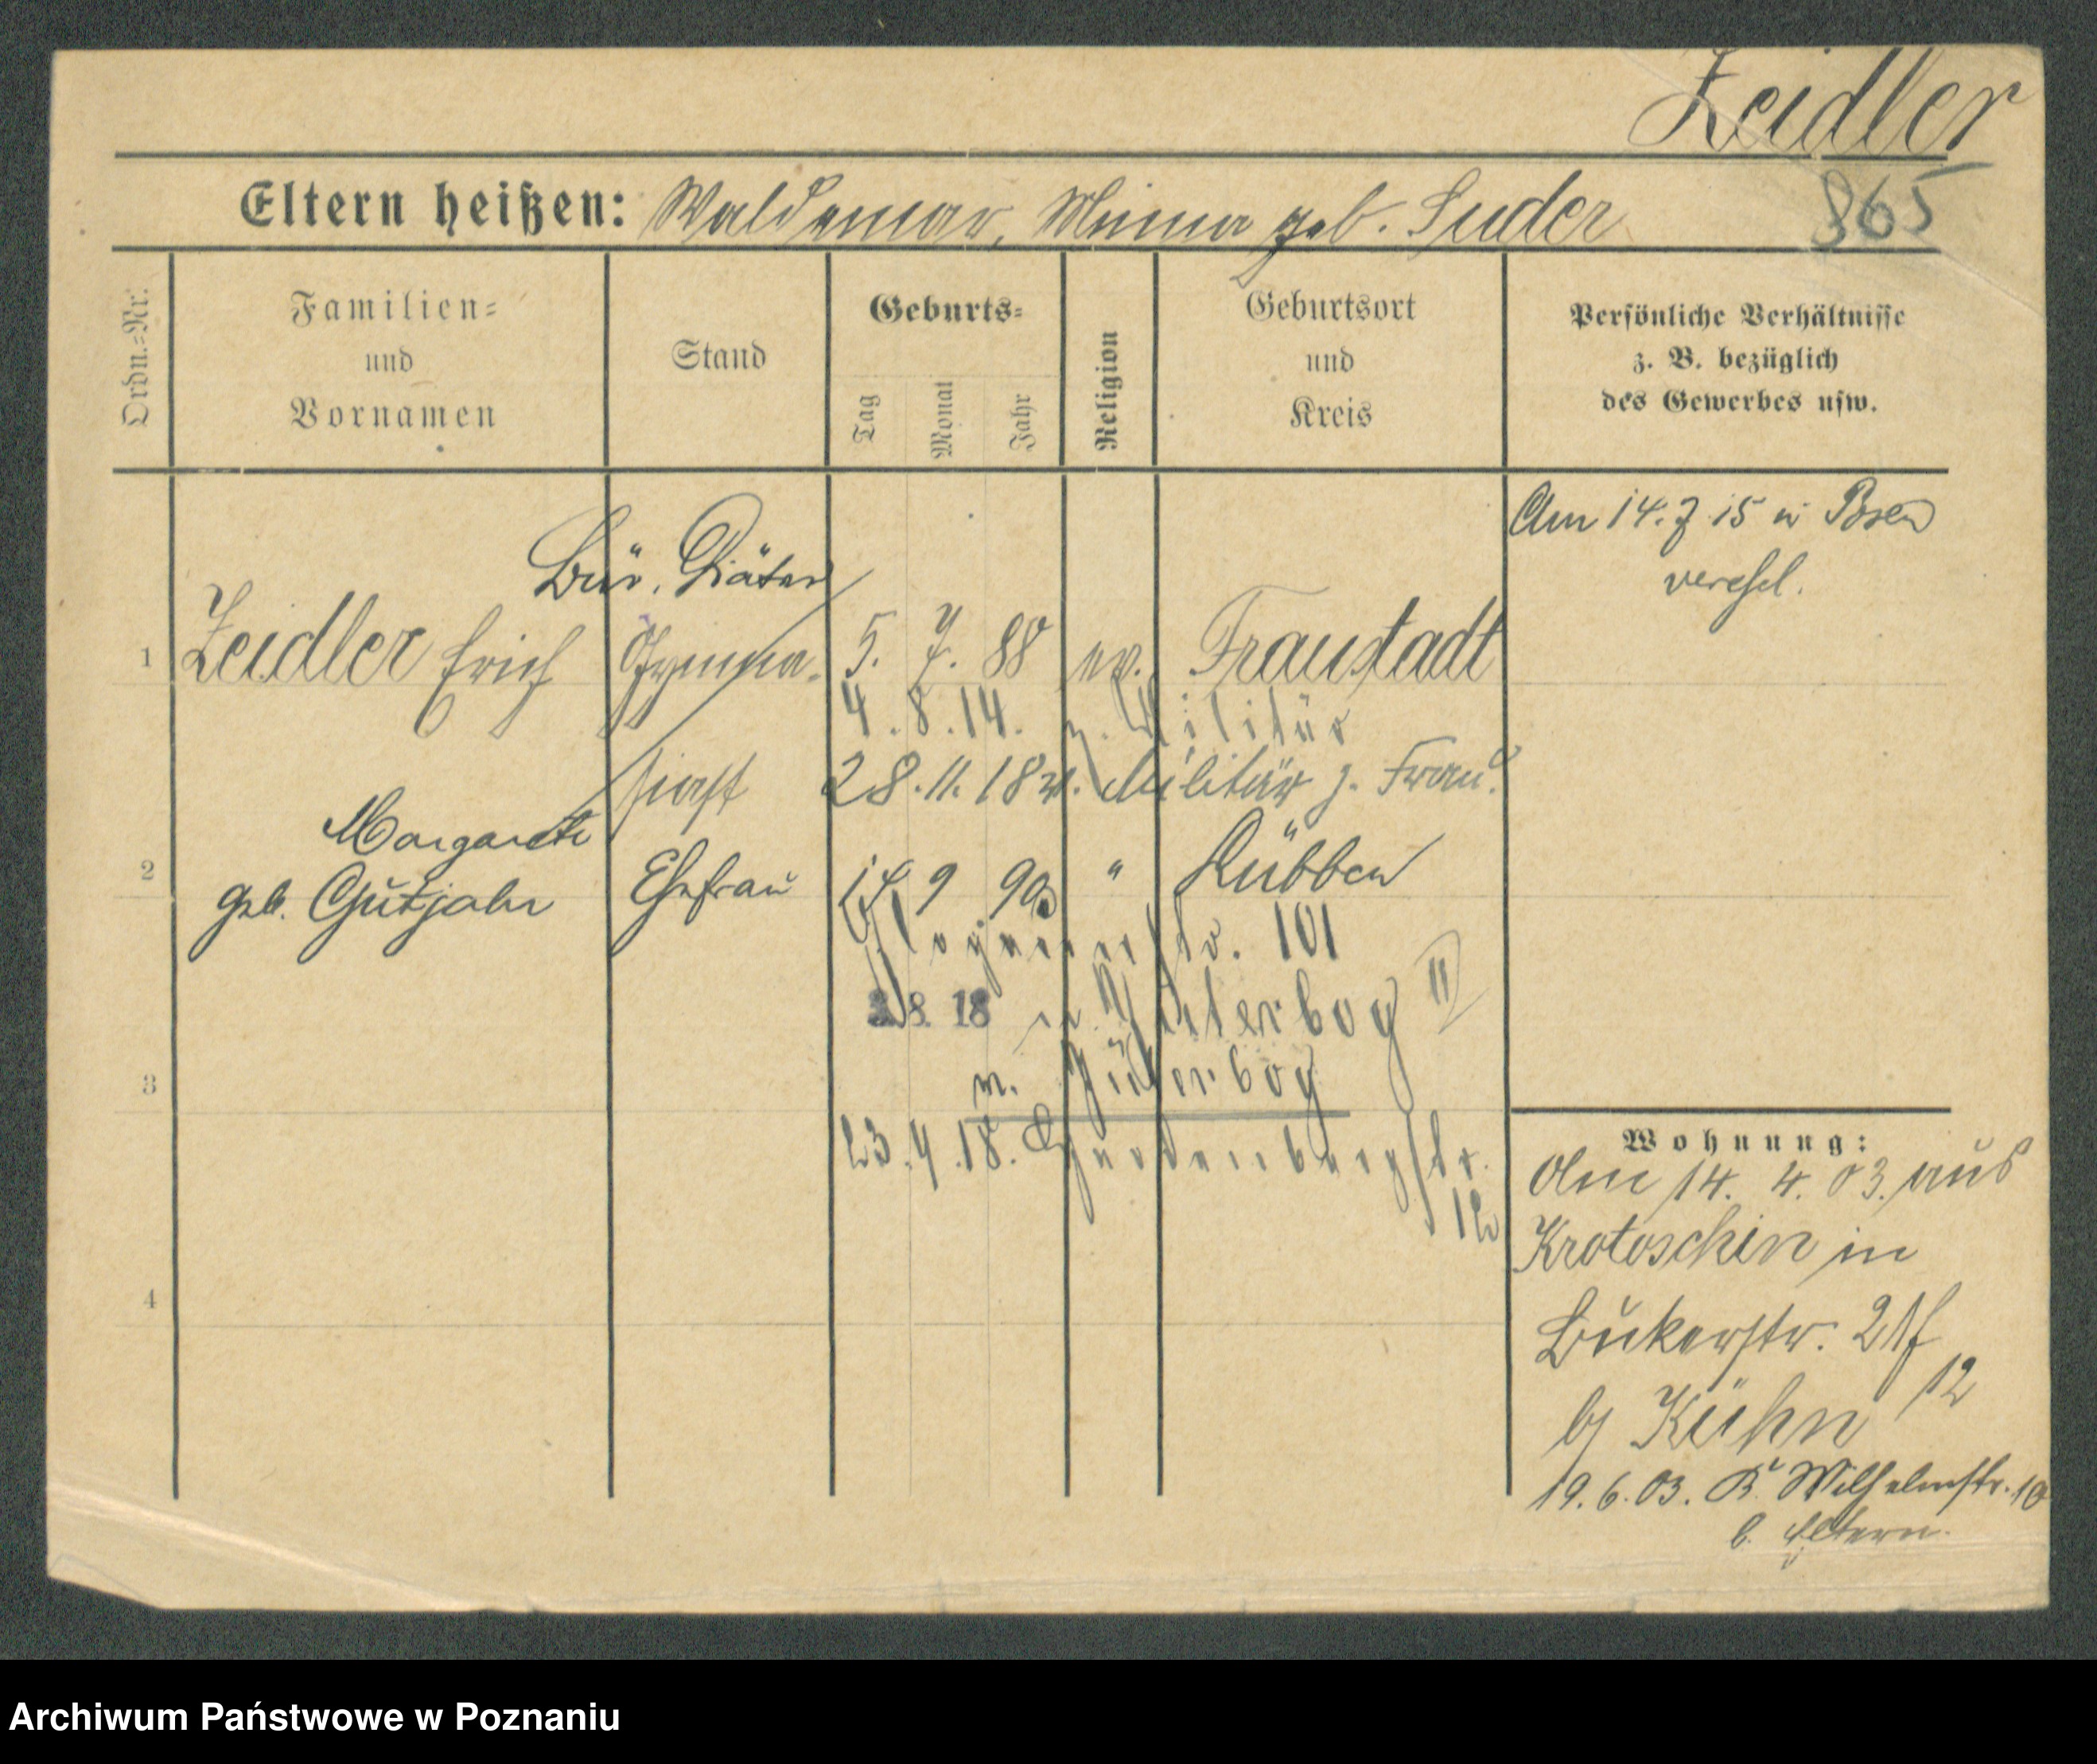 Zeidler
Eltern heißen: Waldemar, Minna geb. Suder
865
Ordn.-Nr.
Familien-
und
Vornamen
Stand
Geburts-
Tag
Monat
Jahr
Religion
Geburtsort
und
Kreis
Persönliche Verhältnisse
z. B. bezüglich
des Gewerbes usw.
Am 14. 7. 15 in Posen
verehel.
Bür. Diätar
1 Zeidler Erich Gymna- 5. 7. 88 ev. Fraustadt
4. 8. 14. z. Militär
siast 28. 11. 18 v. Militär z. Frau.
Margarete
2 geb. Gutjahr Ehefrau 14 9 90 " Lübben
Glogauerstr. 101
8. 18 n. Jüterbog II
v. Jüterbog
3
23. 4. 18. Hardenbergstr.
12
4
Wohnung:
Am 14. 4. 03. aus
Krotoschin in
Bukerstr. 21f
b/ Kühn 12
19. 6. 03. Wilhelmstr. 10
b. Eltern.
Archiwum Państwowe w Poznaniu